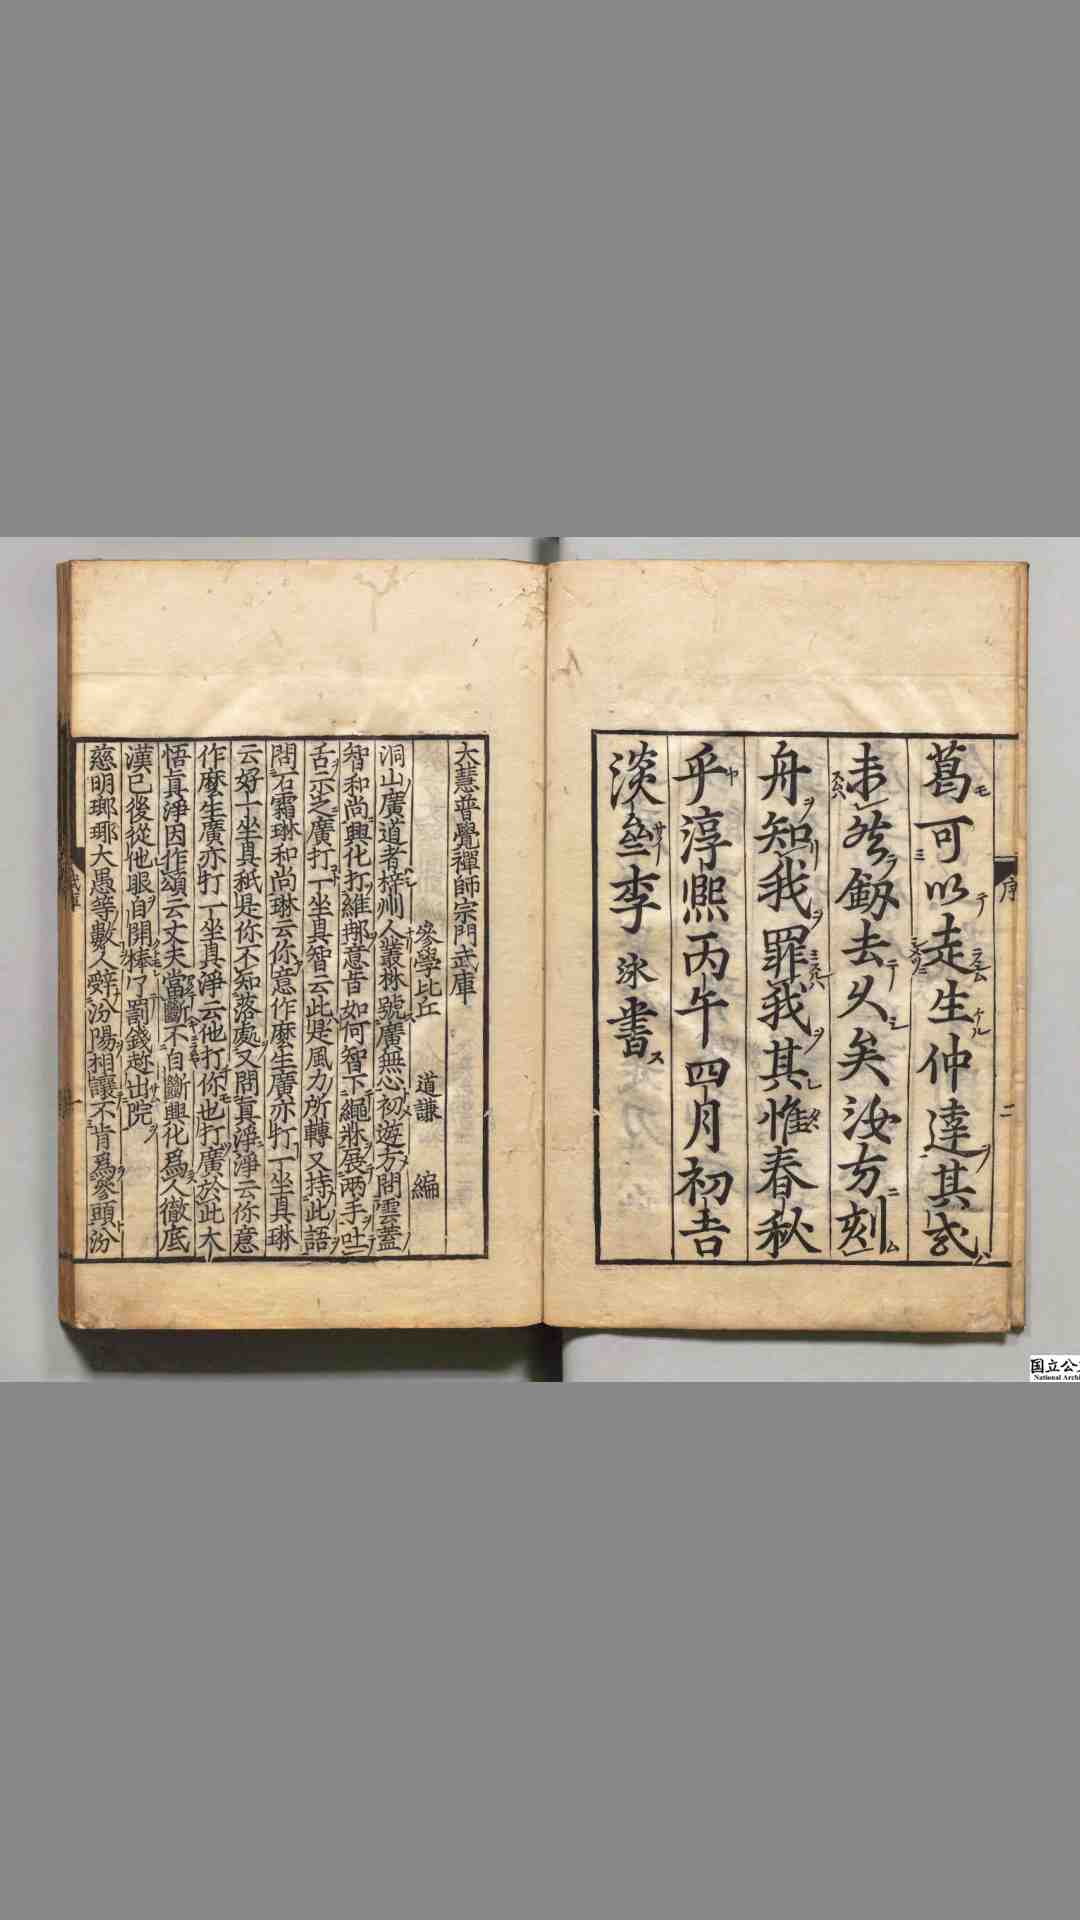 葛可以走生仲達其或
未然劔去久矣汝方刻
舟知我罪我其惟春秋
乎淳熈丙午四月初吉
淡齋李泳書
序
二
大慧普覺禪師宗門武庫
參學比丘 道謙 編
洞山廣道者梓州人叢林號廣無心初遊方問雲蓋
智和尚興化打維那意旨如何智下繩牀展兩手吐
舌示之廣打一坐具智云此是風力所轉又持此語
問石霜琳和尚琳云你意作麽生廣亦打一坐具琳
云好一坐具秖是你不知落處又問眞淨淨云你意
作麽生廣亦打一坐具淨云他打你也打廣於此大
悟眞淨因作頌云丈夫當斷不自斷興化爲人徹底
漢已後從他眼自開棒了罰錢趂出院
慈明瑯琊大愚等數人辭汾陽相讓不肯爲參頭汾
国立公
National Archi